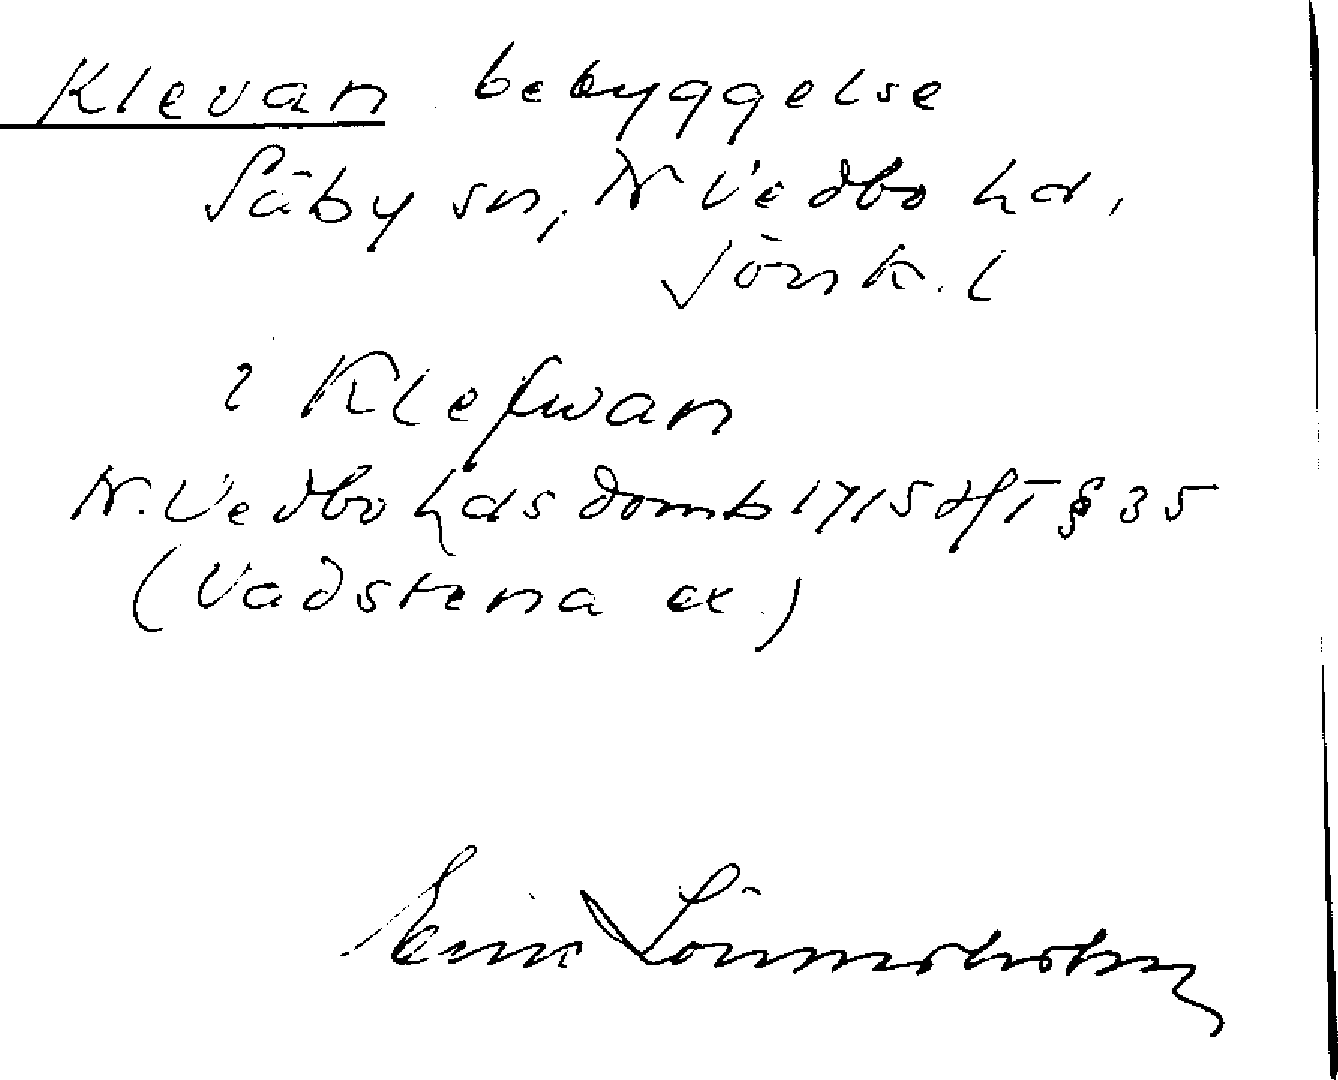 Klevan bebyggelse
Säby sn, N Vedbo hd,
Jönk. l
i Klefwan
N. Vedbo hds domb 1715 HT § 35
(Vadstena ex.)